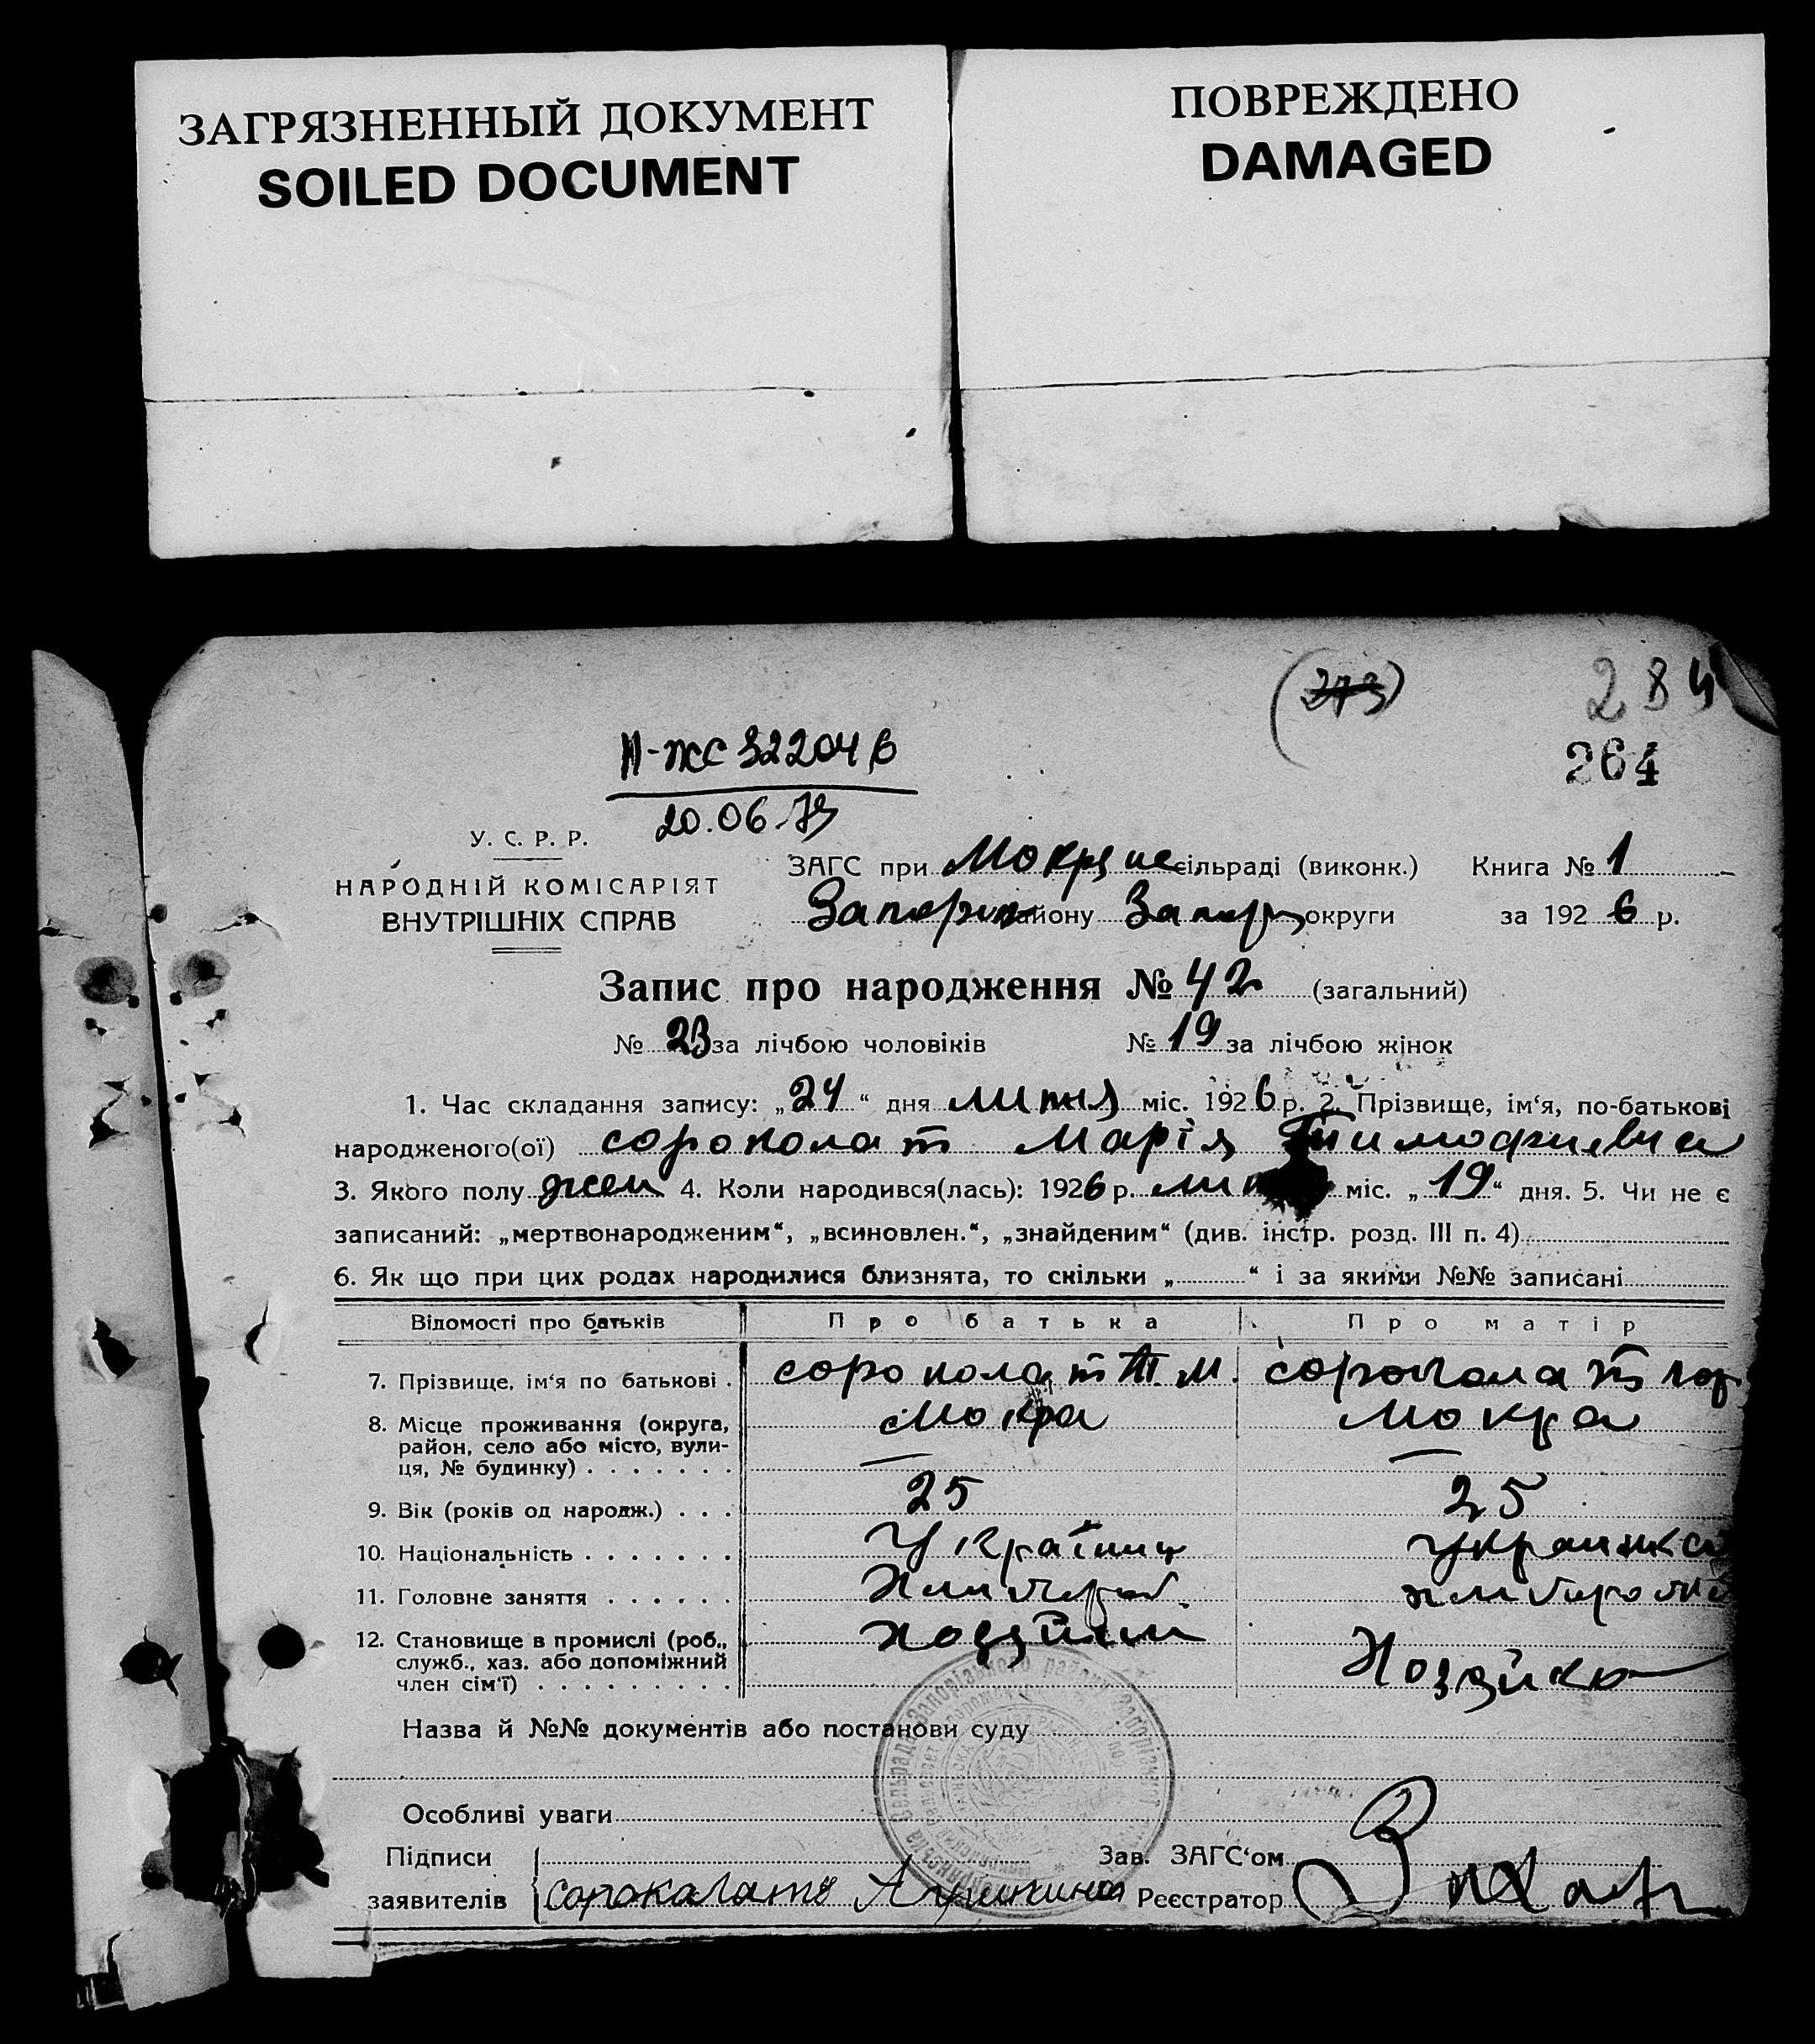 ЗАГРЯЗНЕННЫЙ ДОКУМЕНТ
SOILED DOCUMENT
ПОВРЕЖДЕНО
DAMAGED
(273)
284
264
II-ЖС 322046
20.06.79
У. С. Р. Р.
НАРОДНІЙ КОМІСАРІЯТ
ВНУТРІШНІХ СПРАВ
ЗАГС при Мокрян сільраді (виконк.) Книга № 1
Запоріз району Запор округи за 1926 р.
Запис про народження № 42 (загальний)
№ 23 за лічбою чоловіків № 19 за лічбою жінок
1. Час складання запису: „24“ дня липня міс. 1926 р. 2. Прізвище, ім‘я, по-батькові
народженого(ої) сороколат Марія Тимофиевна
3. Якого полу жен 4. Коли народився(лась): 1926 р. міс. „19“ дня. 5. Чи не є
записаний: „мертвонародженим“, „всиновлен.“, „знайденим“ (див. інстр. розд. III п. 4)
6. Як що при цих родах народилися близнята, то скільки „ “ і за якими №№ записані
Відомості про батьків Про батька Про матір
7. Прізвище, ім‘я по батькові . сороколат Т. М. сороколат
8. Місце проживання (округа, Мокра Мокра
район, село або місто, вули-
ця, № будинку) . . . . . . .
9. Вік (років од народж.) . . . 25 25
10. Національність . . . . . . . Українц украинка
11. Головне заняття . . . . . . Хлибороб.
12. Становище в промислі (роб., Хозяйин
служб., хаз. або допоміжний Хозяйка
член сім‘ї) . . . . . . . . .
Назва й №№ документів або постанови суду
Особливі уваги
Підписи Зав. ЗАГС‘ом
заявителів Сороколатъ Реєстратор